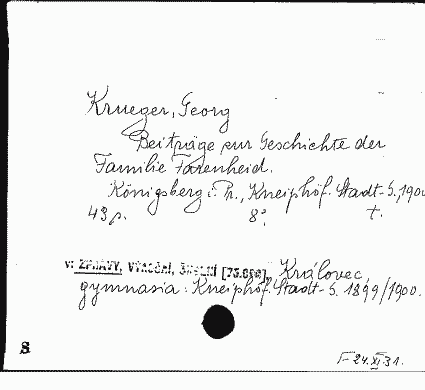 Krueger, Georg
Beiträge zur Geschichte der
Familie Farenheid.
Königsberg i. Pr., Kneiphöf. Stadt-G., 1900
43 p. 8°. t.
v: ZPRÁVY, VÝROČNÍ, ŠKOLNÍ Královec,
gymnasia: Kneiphöf. Stadt-G. 1899/1900.
S
24.XI.31.